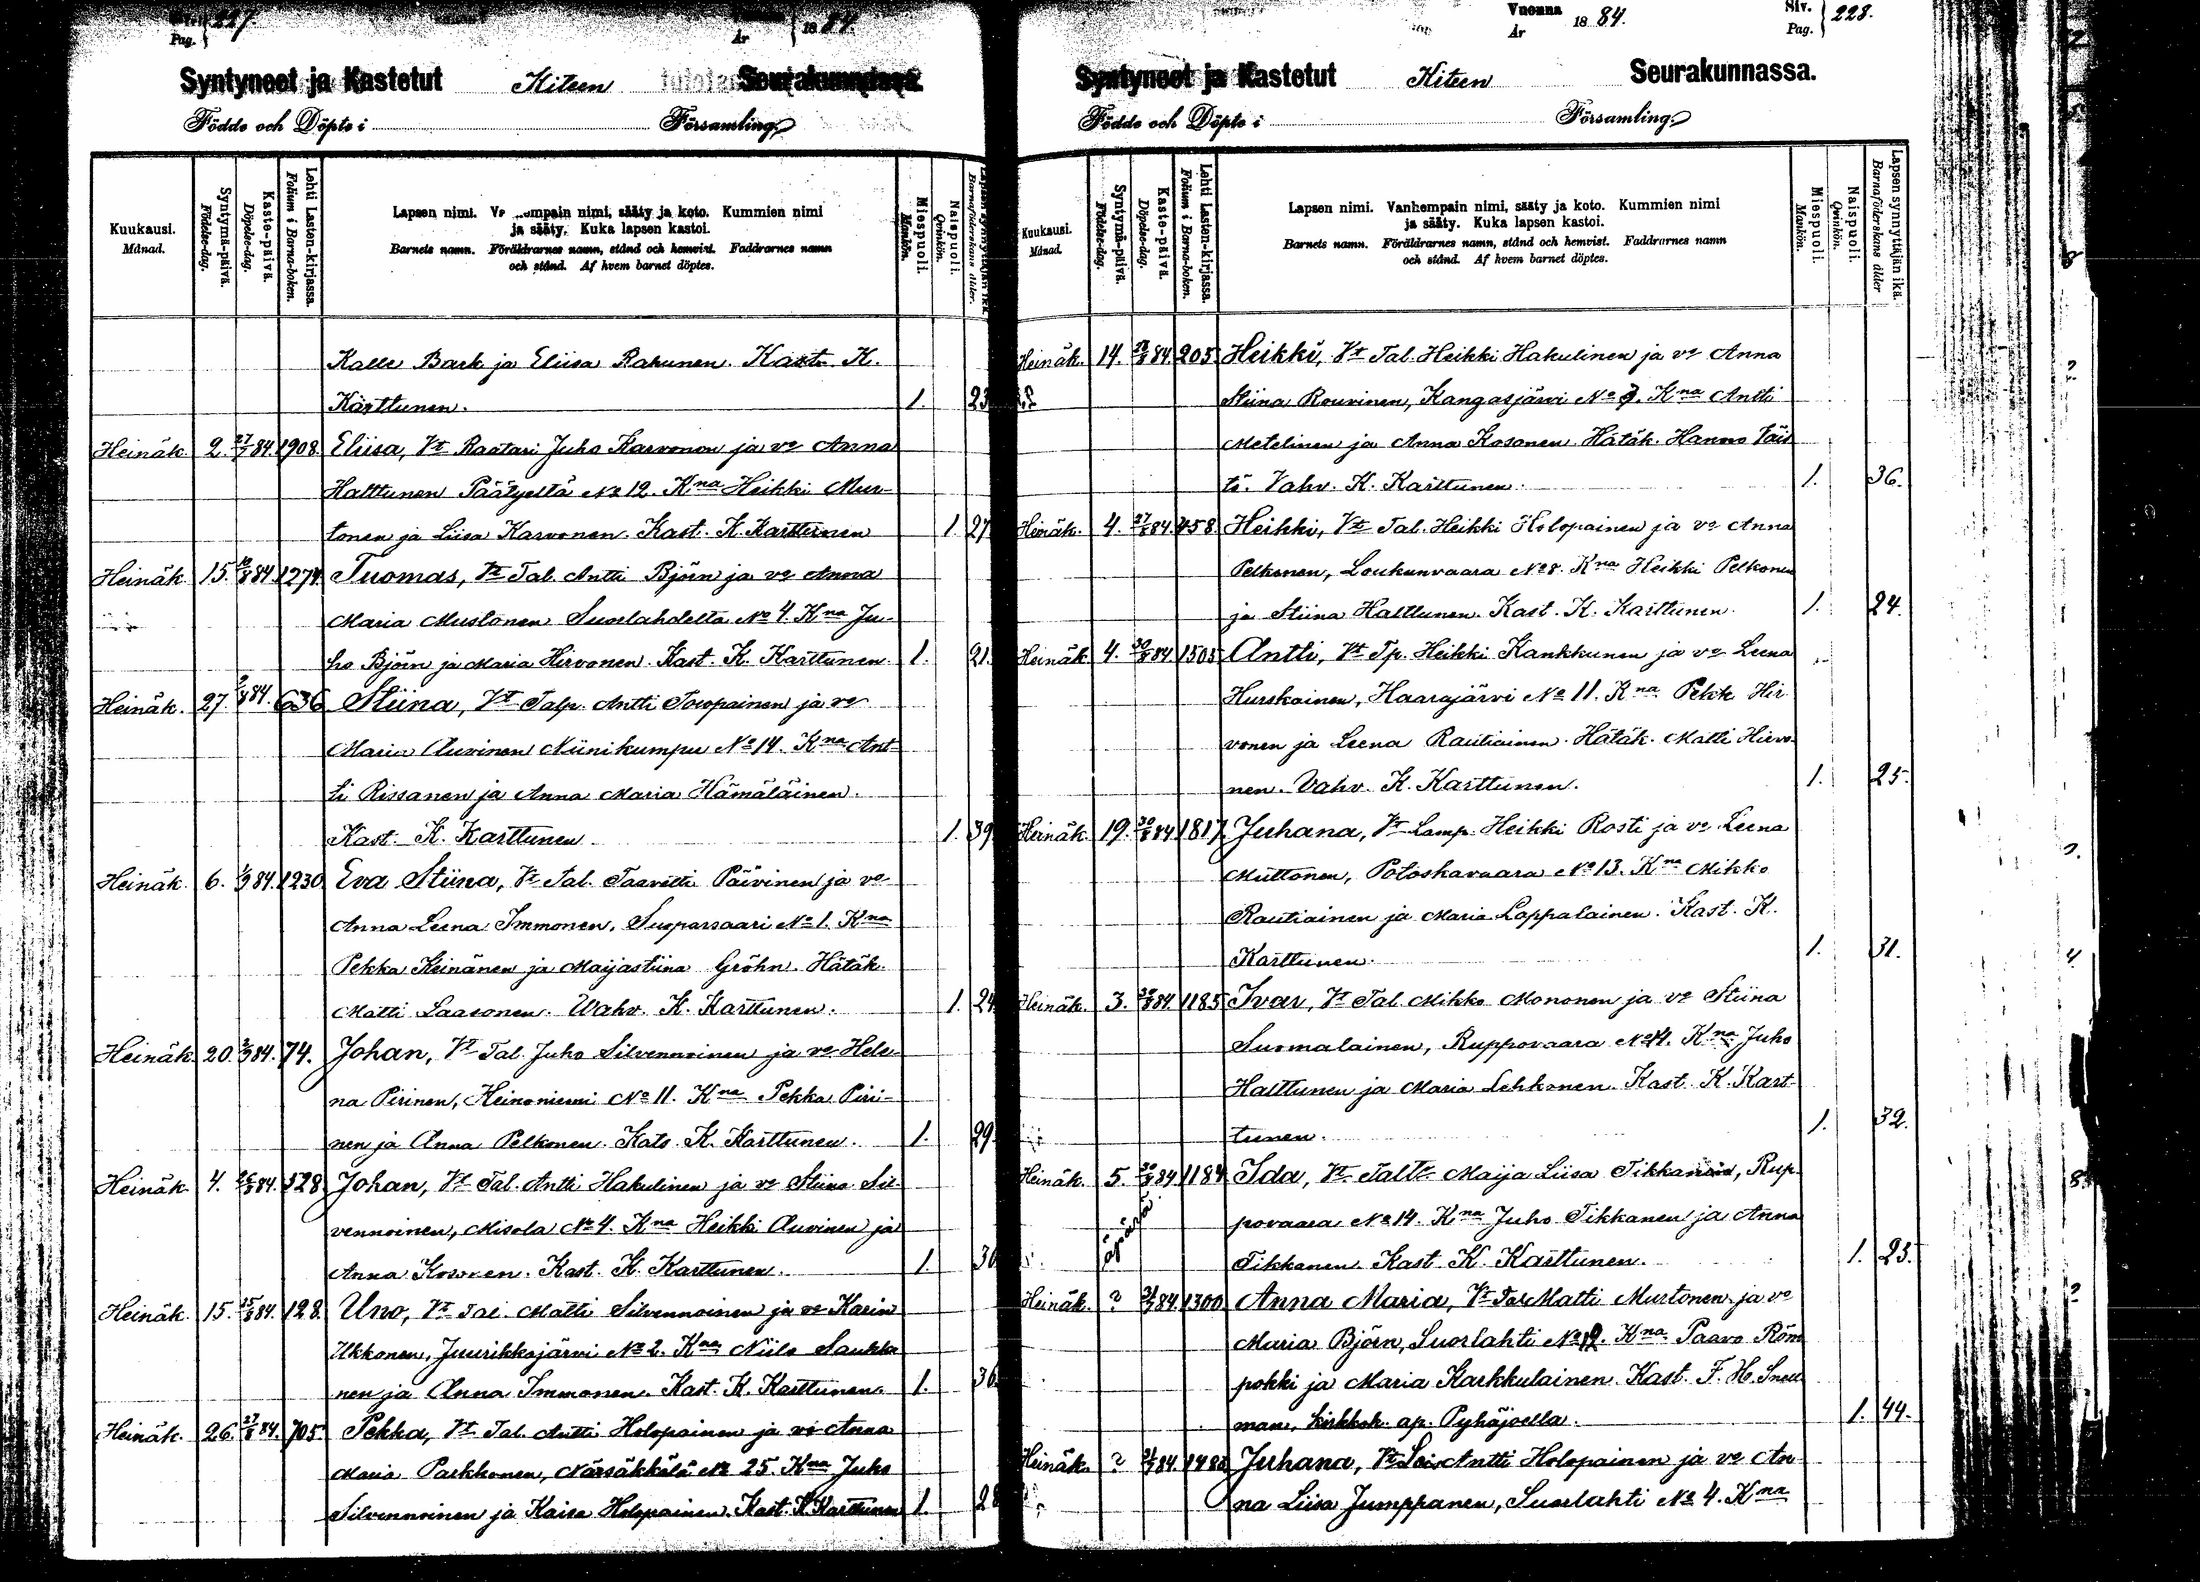 Pag. 227.
År 1884.
Syntyneet ja Kastetut Kiteen Seurakunnassa.
Födde och Döpte i Församling
Kuukausi. Månad.
Syntymä-päivä. Födelse-dag.
Kaste-päivä. Döpelse-dag.
Lehti Lasten-kirjassa. Folium i Barna-boken.
Lapsen nimi. Vanhempain nimi, sääty ja koto. Kummien nimi
ja sääty. Kuka lapsen kastoi.
Barnets namn. Föräldrarnes namn, stånd och hemvist. Faddrarnes namn
och stånd. Af hvem barnet döptes.
Miespuoli. Mankön.
Naispuoli. Qvinkön.
Lapsen synnyttäjän ikä. Barnaföderskans ålder.
Kalle Bark ja Eliisa Rakunen. Kast. K.
Karttunen. 1. 23
Heinäk. 2. 27/7 84. 1908. Eliisa, Vt Raatari Juho Karvonen ja vo Anna
Halttunen Päätyeltä No 12. Kna Heikki Mus-
tonen ja Liisa Karvonen. Kast. K. Karttunen 1. 27
Heinäk. 15. 84 1274. Tuomas, Vt Tal. Antti Björn ja vo Anna
Maria Mustonen Suorlahdelta No 4. Kna Ju-
ho Björn ja Maria Hirvonen. Kast. K. Karttunen. 1. 21.
Heinäk. 27. 84. 636 Stiina, Vt Talp. Antti Toropainen ja vo
Maria Auvinen Niinikumpu No 14. Kna Ant-
ti Rissanen ja Anna Maria Hämäläinen.
Kast. K. Karttunen 1. 39
Heinäk. 6. 1/9 84. 1230. Eva Stiina, Vt Tal. Taavetti Päivinen ja vo
Anna Leena Immonen, Suoparsaari No 1. Kna
Pekka Keinänen ja Maijastiina Gröhn. Hätäk.
Matti Laasonen. Wahv. K. Karttunen. 1. 24
Heinäk. 20. 84. 74. Johan, Vt Tal. Juho Silvennoinen ja vo Hele-
na Pirinen, Heinoniemi No 11. Kna Pekka Piri-
nen ja Anna Pelkonen. Kats. K. Karttunen. 1. 29
Heinäk. 4. 84. 528 Johan, Vt Tal. Antti Hakulinen ja vo Stiina Sil-
vennoinen, Misola No 4. Kna Heikki Auvinen ja
Anna Kosonen. Kast. K. Karttunen. 1. 30
Heinäk. 15. 84. 128. Uno, Vt Tal. Matti Silvennoinen ja vo Karin
Ukkonen, Juurikkajärvi No 2. Kna Niilo Saukko-
nen ja Anna Immonen. Kast. K. Karttunen. 1. 36
Heinäk. 26. 27/8 84. 705. Pekka, Vt Tal. Antti Holopainen ja vo Anna
Maria Parkkonen, Närsäkkälä No 25. Kna Juho
Silvennoinen ja Kaisa Holopainen. Kast. K Karttunen 1. 28
Vuonna År 1884.
Siv. Pag. 228.
Syntyneet ja Kastetut Kiteen Seurakunnassa.
Födde och Döpte i Församling
Kuukausi. Månad.
Syntymä-päivä. Födelse-dag.
Kaste-päivä. Döpelse-dag.
Lehti Lasten-kirjassa. Folium i Barna-boken.
Lapsen nimi. Vanhempain nimi, sääty ja koto. Kummien nimi
ja sääty. Kuka lapsen kastoi.
Barnets namn. Föräldrarnes namn, stånd och hemvist. Faddrarnes namn
och stånd. Af hvem barnet döptes.
Miespuoli. Mankön.
Naispuoli. Qvinkön.
Lapsen synnyttäjän ikä. Barnaföderskans ålder
Heinäk. 14. 84. 205 Heikki, Vt Tal. Heikki Hakulinen ja vo Anna
Stiina Rouvinen, Kangasjärvi No 9. Kna Antti
Metelinen ja Anna Kosonen. Hätäk. Hanno Täis
tö. Vahv. K. Karttunen. 1. 36.
Heinäk. 4. 27/8 84. 458. Heikki, Vt Tal. Heikki Holopainen ja vo Anna
Pelkonen, Loukunvaara No 8. Kna Heikki Pelkonen
ja Stiina Halttunen. Kast. K. Karttunen. 1. 24.
Heinäk. 4. 30/8 84. 1505 Antti, Vt Tp. Heikki Kankkunen ja vo Leena
Hurskainen, Haarajärvi No 11. Kna Pekk. Hir-
vonen ja Leena Rautiainen. Hätäk. Matti Hirvo-
nen. Vahv. K. Karttunen. 1. 25.
Heinäk. 19. 30/8 84 1817. Juhana, Vt Lamp. Heikki Rosti ja vo Leena
Muttonen, Potoskavaara No 13. Kna Mikko
Rautiainen ja Maria Lappalainen. Kast. K.
Karttunen. 1. 31.
Heinäk. 3. 30/8 84. 1185 Ivar, Vt Tal. Mikko Mononen ja vo Stiina
Suomalainen, Ruppovaara No 4. Kna Juho
Halttunen ja Maria Lehkonen. Kast. K. Kart-
tunen. 1. 32.
Heinäk. 5. 30/8 84 1184 Ida, Vt Taltt. Maija Liisa Tikkanen, Rup-
äpärä povaara No 14. Kna Juho Tikkanen ja Anna
Tikkanen. Kast K. Karttunen. 1. 23.
Heinäk. ? 84. 1300 Anna Maria, Vt Tal Matti Mustonen ja vo
Maria Björn, Suorlahti No 12. Kna Paavo Röm
pökki ja Maria Karkkulainen. Kast. F. H. Snell
man, kirkkoh. ap. Pyhäjoella. 1. 44.
Heinäk. ? 84 Juhana, Vt Antti Holopainen ja vo An-
na Liisa Jumppanen, Suorlahti No 4. Kna